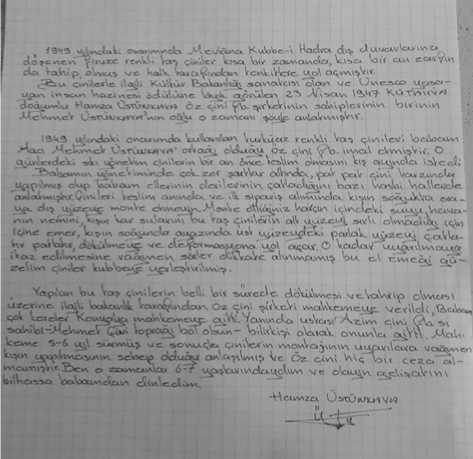 1949 yılındaki onarımında Mevlâna Kubbe-i Hadra dış duvarlarına
döşenen firuze renkli taş çiniler kısa bir zamanda, kısa bir an
da tahip olmuş ve halk tarafından tenkitlere yol açmıştır.
Bu çinilerle ilgili Kültür Bakanlığı sanatçısı olan ve Unesco yaşa-
yan insan hazinesi ödülüne layık görülen 23 Nisan 1947 KÜTAHYA
doğumlu Hamza Üstünkaya öz çini fb. şirketinin sahiplerinin birinin
Mehmet Üstünkaya'nın oğlu o zamanı şöyle anlatmıştır.
1949 yılındaki onarımda kullanılan turkuaz renkli taş çinileri babacım
Mehmet Üstünkaya'nın ortağı olduğu öz çini fb. imal etmiştir. O
günlerdeki yönetim çinilerin bir an önce teslim olmasını kış ayında istedi
Babamın yönetiminde çok zor şartlar altında, pat pat çini
yapılmış olup babam ellerinin derilerinin çatladığını bazı hallerde
anlatmıştır. Çinileri teslim anında ve ilk sipariş alımında, kışın soğukta
dış yüzeye monte etmeyin. Monte ettiğiniz harcın içindeki suyu, hava-
nın nemini, kışın kar sularını bu taş çinilerin alt yüzeyi sırlı olmadığı için
içine emer, kışın soğuğunda ayazında üst yüzeydeki parlak yüzeyi çatla-
tır patlatır, dökülmeye ve deformasyona yol açar. O kadar uyarılmasına
ikaz edilmesine rağmen sözler dikkate alınmamış bu el emeği gü-
zelim çiniler kubbeye yerleştirilmiş.
Yapılan bu taş çinilerin belli bir sürede dökülmesi ve tahrip olması
üzerine ilgili bakanlık tarafından öz çini şirketi mahkemeye verildi. Babam
çok kereler Konya'ya mahkemeye gitti. Yanında ustası Azim çini fb. sı
sahibi Mehmet Çini toprağı bol olsun - bilirkişi olarak onunla gitti. Mah-
keme 5-6 yıl sürmüş ve sonuçta çinilerin montajının uyarılara rağmen
kışın yapılmasının sebep olduğu anlaşılmış ve öz çini hiç bir ceza al-
mamıştır. Ben o zamanlar 6-7 yaşlarındaydım ve olayın gelişatını
bilhassa babamdan dinledim.
Hamza Üstünkaya